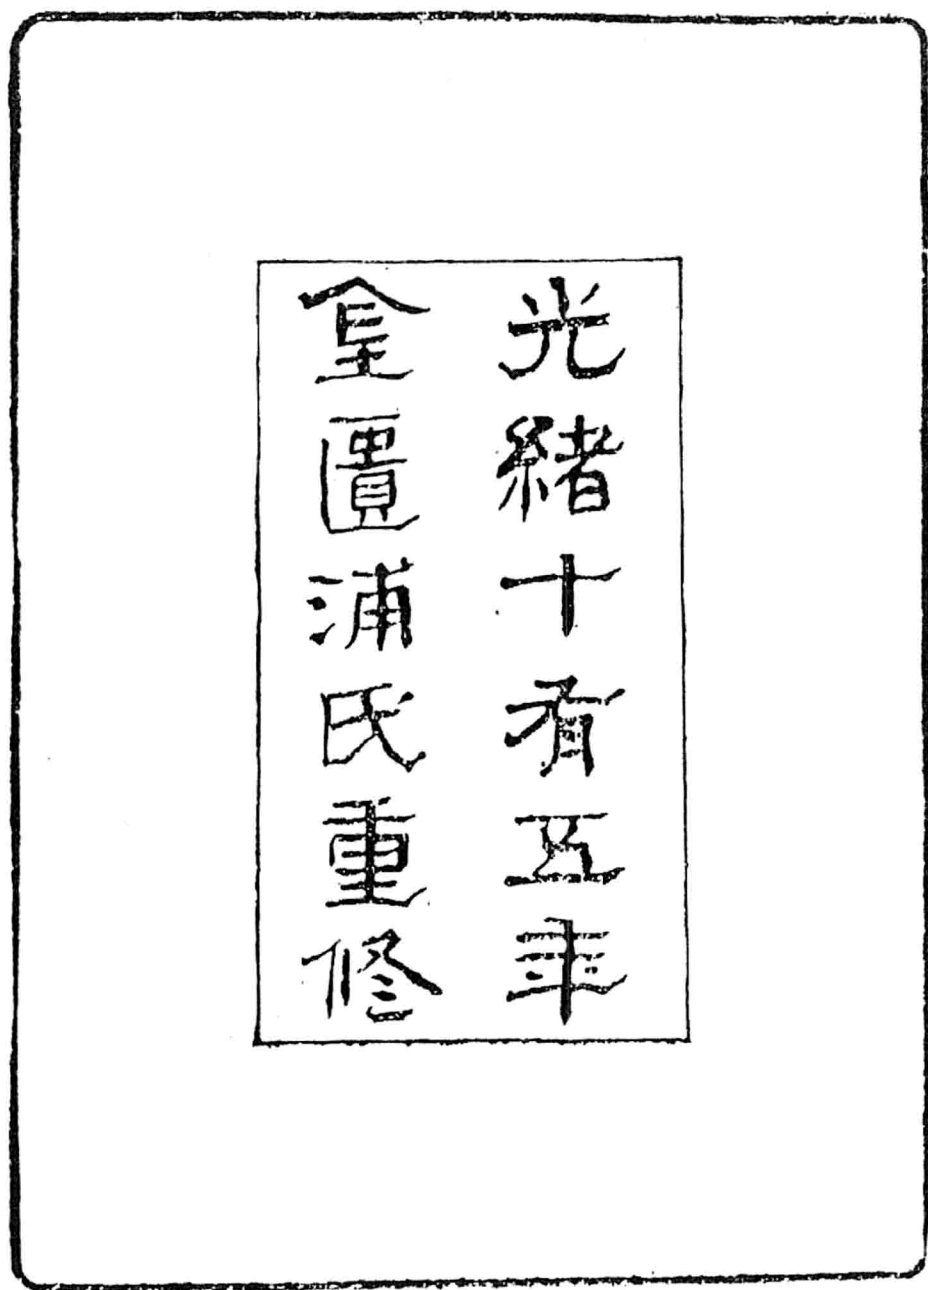 光緒十有五年
金匱浦氏重修